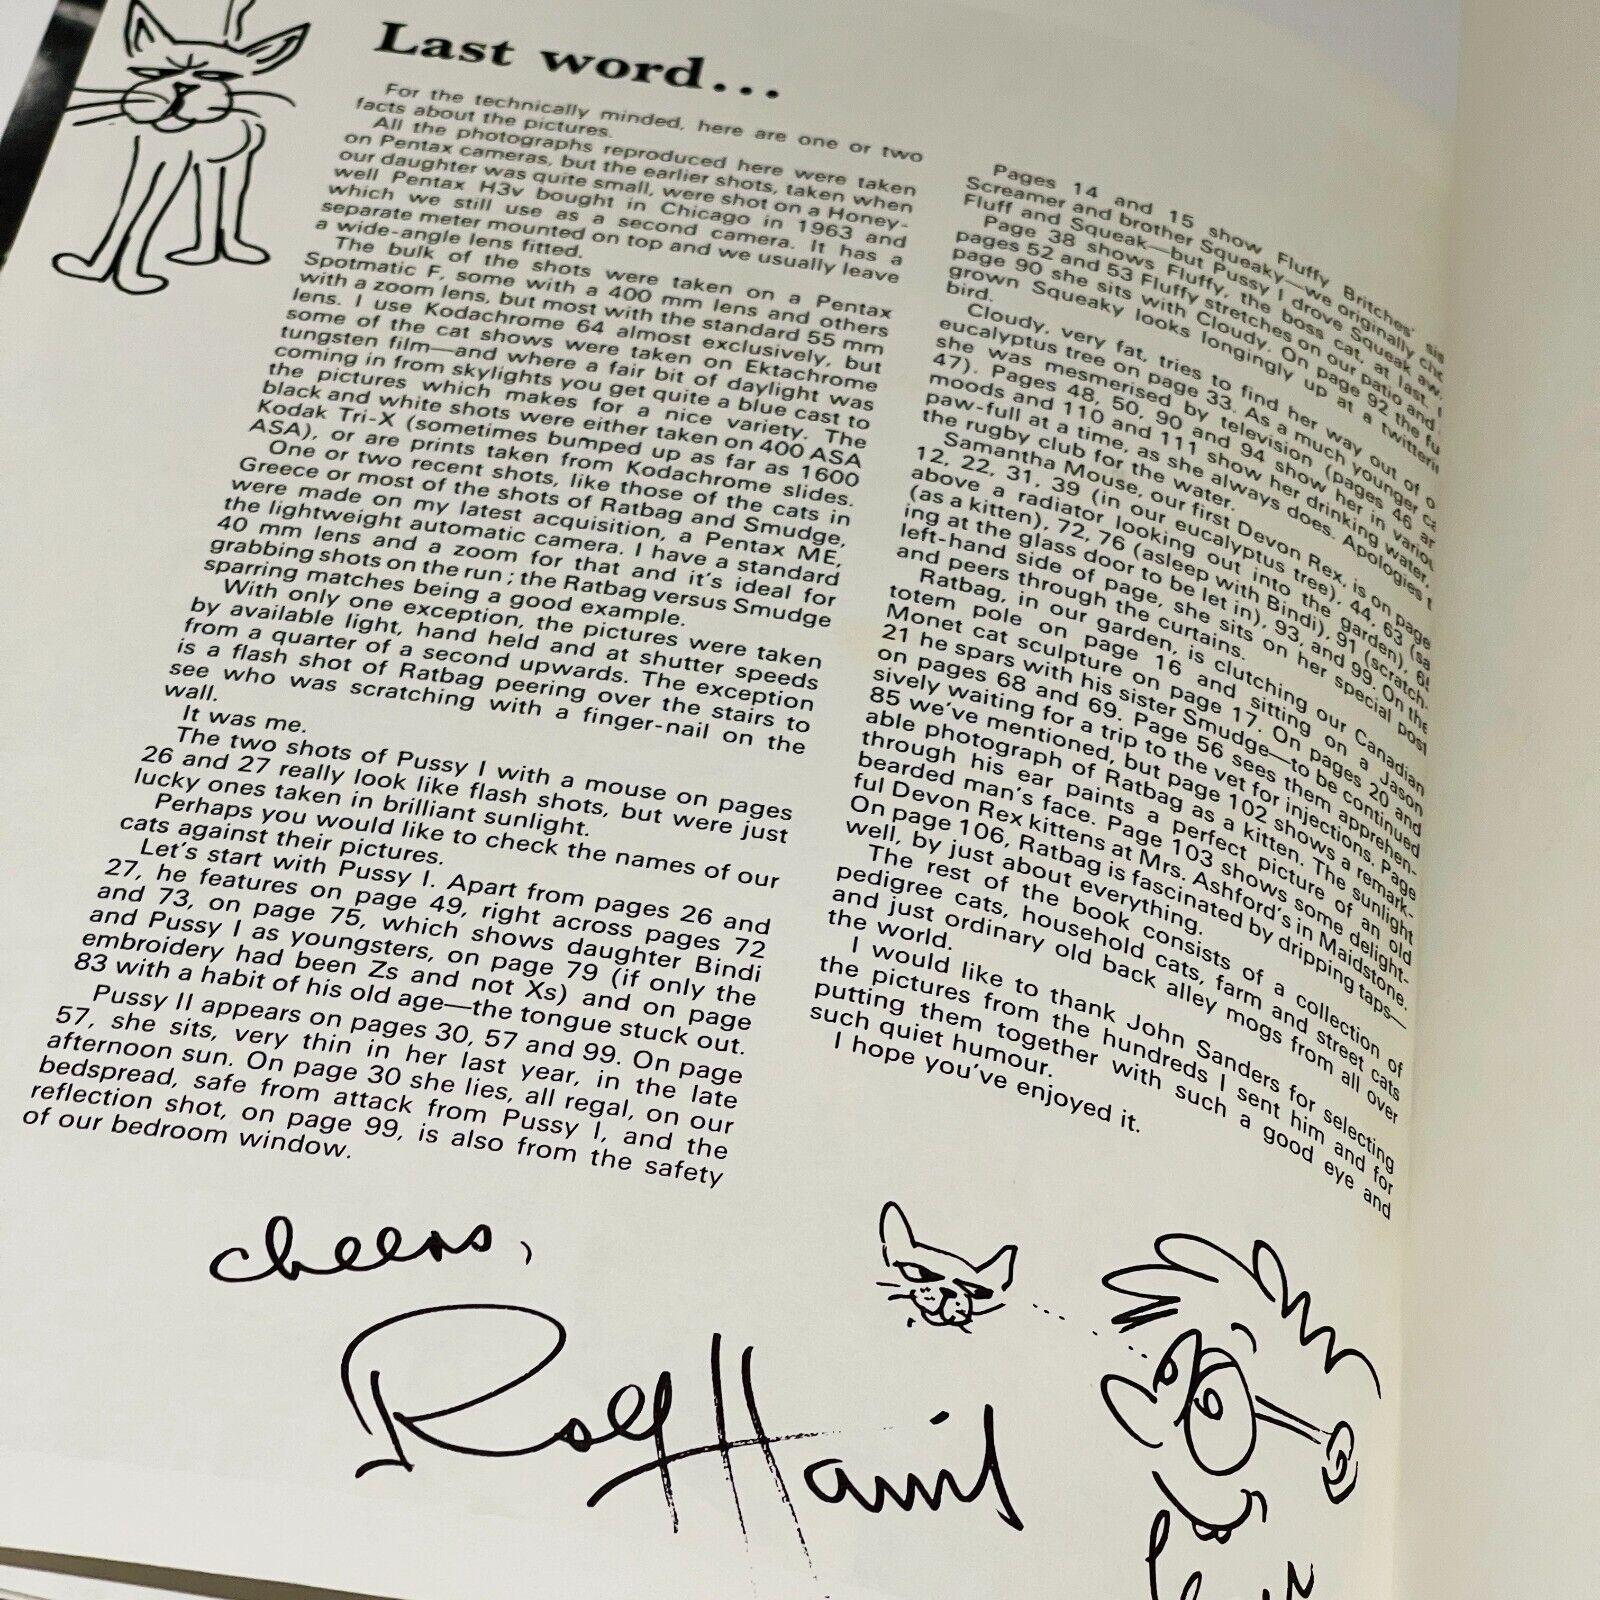 Last word...
For the technically minded, here are one or two
facts about the pictures.
All the photographs reproduced here were taken
on Pentax cameras, but the earlier shots, taken when
our daughter was quite small, were shot on a Honey-
well Pentax H3v bought in Chicago in 1963 and
which we still use as a second camera. It has a
separate meter mounted on top and we usually leave
a wide-angle lens fitted.
The bulk of the shots were taken on a Pentax
Spotmatic F, some with a 400 mm lens and others
with a zoom lens, but most with the standard 55 mm
lens. I use Kodachrome 64 almost exclusively, but
some of the cat shows were taken on Ektachrome
tungsten film—and where a fair bit of daylight was
coming in from skylights you get quite a blue cast to
the pictures which makes for a nice variety. The
black and white shots were either taken on 400 ASA
Kodak Tri-X (sometimes bumped up as far as 1600
ASA), or are prints taken from Kodachrome slides.
One or two recent shots, like those of the cats in
Greece or most of the shots of Ratbag and Smudge,
were made on my latest acquisition, a Pentax ME,
the lightweight automatic camera. I have a standard
40 mm lens and a zoom for that and it's ideal for
grabbing shots on the run; the Ratbag versus Smudge
sparring matches being a good example.
With only one exception, the pictures were taken
by available light, hand held and at shutter speeds
from a quarter of a second upwards. The exception
is a flash shot of Ratbag peering over the stairs to
see who was scratching with a finger-nail on the
wall.
It was me.
The two shots of Pussy I with a mouse on pages
26 and 27 really look like flash shots, but were just
lucky ones taken in brilliant sunlight.
Perhaps you would like to check the names of our
cats against their pictures.
Let's start with Pussy I. Apart from pages 26 and
27, he features on page 49, right across pages 72
and 73, on page 75, which shows daughter Bindi
and Pussy I as youngsters, on page 79 (if only the
embroidery had been Zs and not Xs) and on page
83 with a habit of his old age—the tongue stuck out.
Pussy II appears on pages 30, 57 and 99. On page
57, she sits, very thin in her last year, in the late
afternoon sun. On page 30 she lies, all regal, on our
bedspread, safe from attack from Pussy I, and the
reflection shot, on page 99, is also from the safety
of our bedroom window.
Pages 14 and 15 show Fluffy Britches'
Screamer and brother Squeaky—we originally
Fluff and Squeak—but Pussy I drove Squeak
Page 38 shows Fluffy, the boss cat, at last.
pages 52 and 53 Fluffy stretches on our patio and
page 90 she sits with Cloudy. On page 92 the
grown Squeaky looks longingly up at a
bird.
Cloudy, very fat, tries to find her way out of
eucalyptus tree on page 33. As a much younger
she was mesmerised by television (pages 46
47). Pages 48, 50, 90 and 94 show her in
moods and 110 and 111 show her drinking water,
paw-full at a time, as she always does. Apologies
the rugby club for the water.
Samantha Mouse, our first Devon Rex, is on
12, 22, 31, 39 (in our eucalyptus tree), 44, 63
above a radiator looking out into the garden),
(as a kitten), 72, 76 (asleep with Bindi), 91 (scratch-
ing at the glass door to be let in), 93, and 99. On the
left-hand side of page, she sits on her special post
and peers through the curtains.
Ratbag, in our garden, is clutching our Canadian
totem pole on page 16 and sitting on a Jason
Monet cat sculpture on page 17. On pages 20 and
21 he spars with his sister Smudge—to be continued
on pages 68 and 69. Page 56 sees them apprehen-
sively waiting for a trip to the vet for injections. Page
85 we've mentioned, but page 102 shows a remark-
able photograph of Ratbag as a kitten. The sunlight
through his ear paints a perfect picture of an old
bearded man's face. Page 103 shows some delight-
ful Devon Rex kittens at Mrs. Ashford's in Maidstone.
On page 106, Ratbag is fascinated by dripping taps—
well, by just about everything.
The rest of the book consists of a collection of
pedigree cats, household cats, farm and street cats
and just ordinary old back alley mogs from all over
the world.
I would like to thank John Sanders for selecting
the pictures from the hundreds I sent him and for
putting them together with such a good eye and
such quiet humour.
I hope you've enjoyed it.
cheers,
Rolf Harris